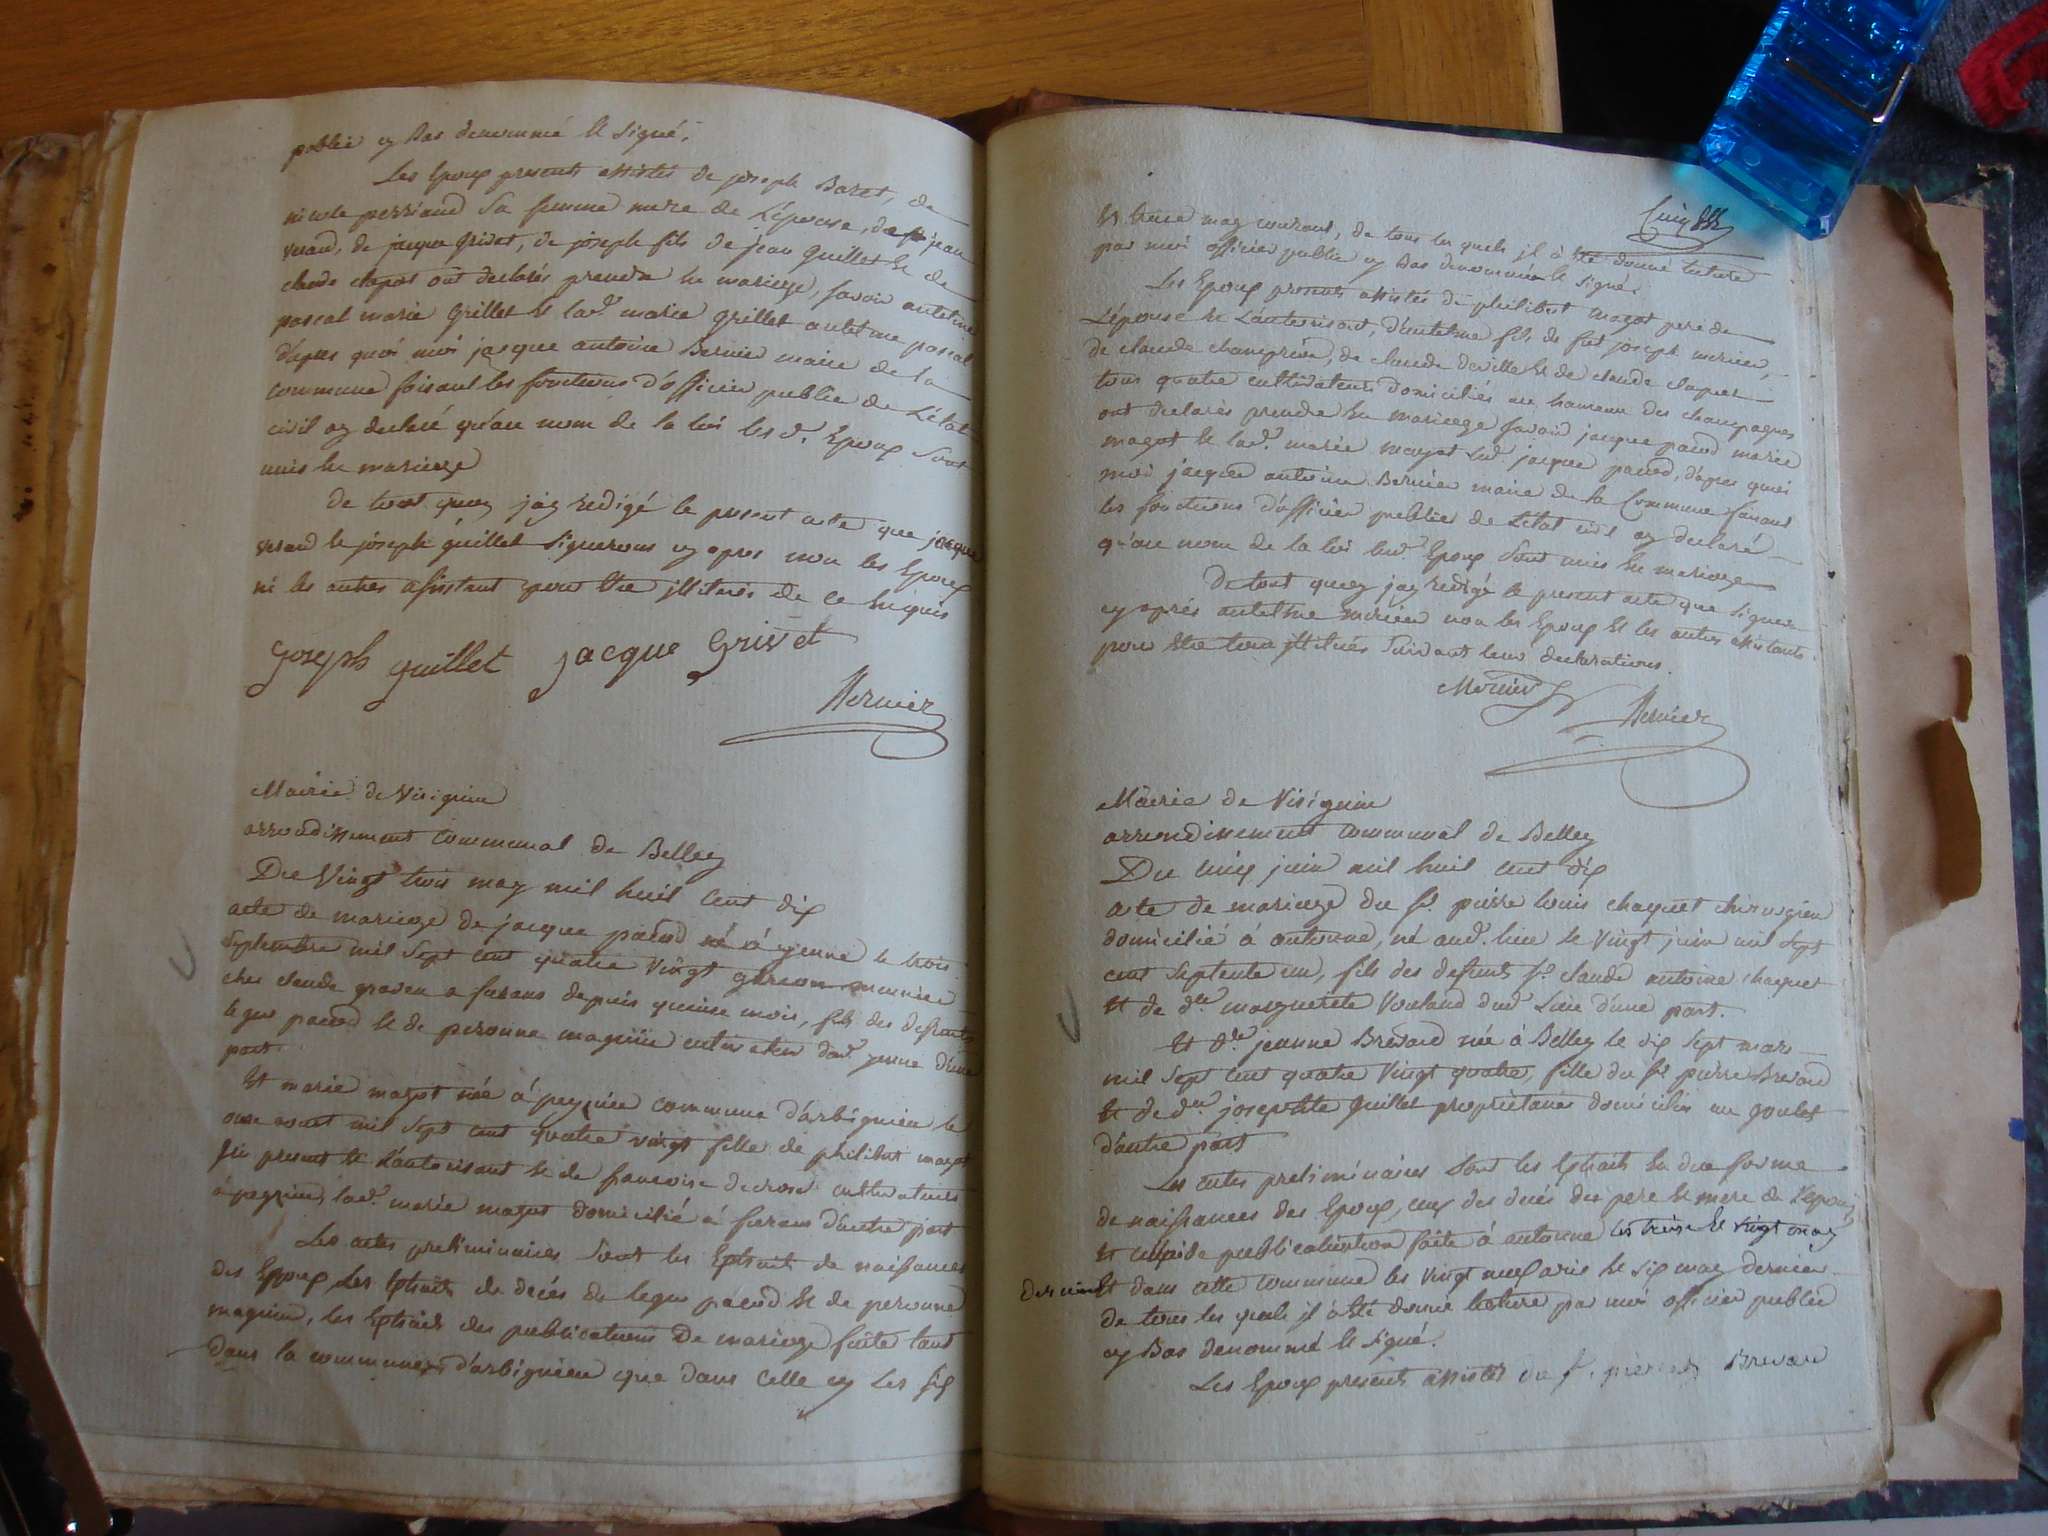 public cy bas denommé et signé,
Les Epoux presents assistés de joseph Baret, de
nicole perriand sa femme mere de L'épouse, de jean
de jacque Grivet, de joseph fils de jean Guillet et de
claude clapot ont declarés prendre en mariage, savoir antelme
pascal marie Grillet et lad. marie Grillet antelme pascal
d'apres quoi moi jacque antoine Bernier maire de la
commune faisant les fonctions d'officier public de L'état
civil ay declaré qu'au nom de la loi les d. Epoux sont
unis en mariage
de tout quoy j'ay redigé le present acte que jacque
et joseph guillet signerons cy apres non les Epoux
ni les autres assistant pour etre illiterés de ce enquis
Joseph guillet jacque Grivet
Bernier
Mairie de Virignin
arrondissement communal de Belley
Du Vingt trois may mil huit cent dix
acte de mariage de jacque né à yenne le trois
Septembre mil Sept cent quatre Vingt garcon meunier
chez claude a furans depuis quinze mois, fils des defunts
et de peronne cultivateur dud. yenne d'une
part.
Et marie magot née à peyzieu commune d'arbignieu le
onze aout mil Sept cent quatre vingt fille de philibert magot
present et L'autorisant et de francoise cultivateurs
à peyzieu, lad. marie magot domicilié à furans d'autre part
Les actes preliminaires sont les Extraits de naissances
des Epoux, Les Extraits de décés de et de peronne
les Extraits des publications De mariage faite tant
dans la commune d'arbignieu que dans celle cy les six
Cinq
Et treize may courant, de tous les quels il à été donné lecture
par moi officier public cy bas denommé et signé.
Les Epoux presents assistés de philibert magot pere de
L'épouse et L'autorisant, d'antelme fils de feu joseph mercier,
de claude de claude deville et de claude clapot
tous quatre cultivateurs domiciliés au hameau des champagnes
ont declarés prendre en mariage savoir jacque marie
magot et lad. marie magot led. jacque d'apres quoi
moi jacque antoine Bernier maire de la Commune faisant
les fonctions d'officier public de L'état civil ay declaré
qu'au nom de la loi lesd. Epoux sont unis en mariage
De tout quoy j'ay redigé le present acte que signera
cy aprés antelme mercier non les Epoux et les autres assistants
pour etre tous illiterés suivant leur declarations.
Mercier Bernier
Mairie de Virignin
arrondissement communal de Belley
Du cinq juin mil huit cent dix
acte de mariage du Sr. pierre louis chaquet chirurgien
domicilié à né aud. lieu le Vingt juin mil Sept
cent Septente un, fils des defunts Sr. claude antoine chaquet
et de dlle. marguerite Vouland dud. Lieu d'une part.
Et dlle. jeanne Brevard née à Belley le dix Sept mars
mil Sept cent quatre Vingt quatre, fille du Sr pierre Brevard
et de dlle. josephte Guillet proprietaires domiciliés au goulet
d'autre part
Les actes preliminaires sont les Extraits en due forme
de naissances des Epoux, ceux des décés des pere et mere de L'epoux
et de publication faite à les treize et vingt may
dernier Et dans cette commune les vingt neuf avril et six may dernier
de tous les quels il à été donné lecture par moi officier public
cy Bas denommé et signé.
Les Epoux presents assistés du s. pierre Brevard